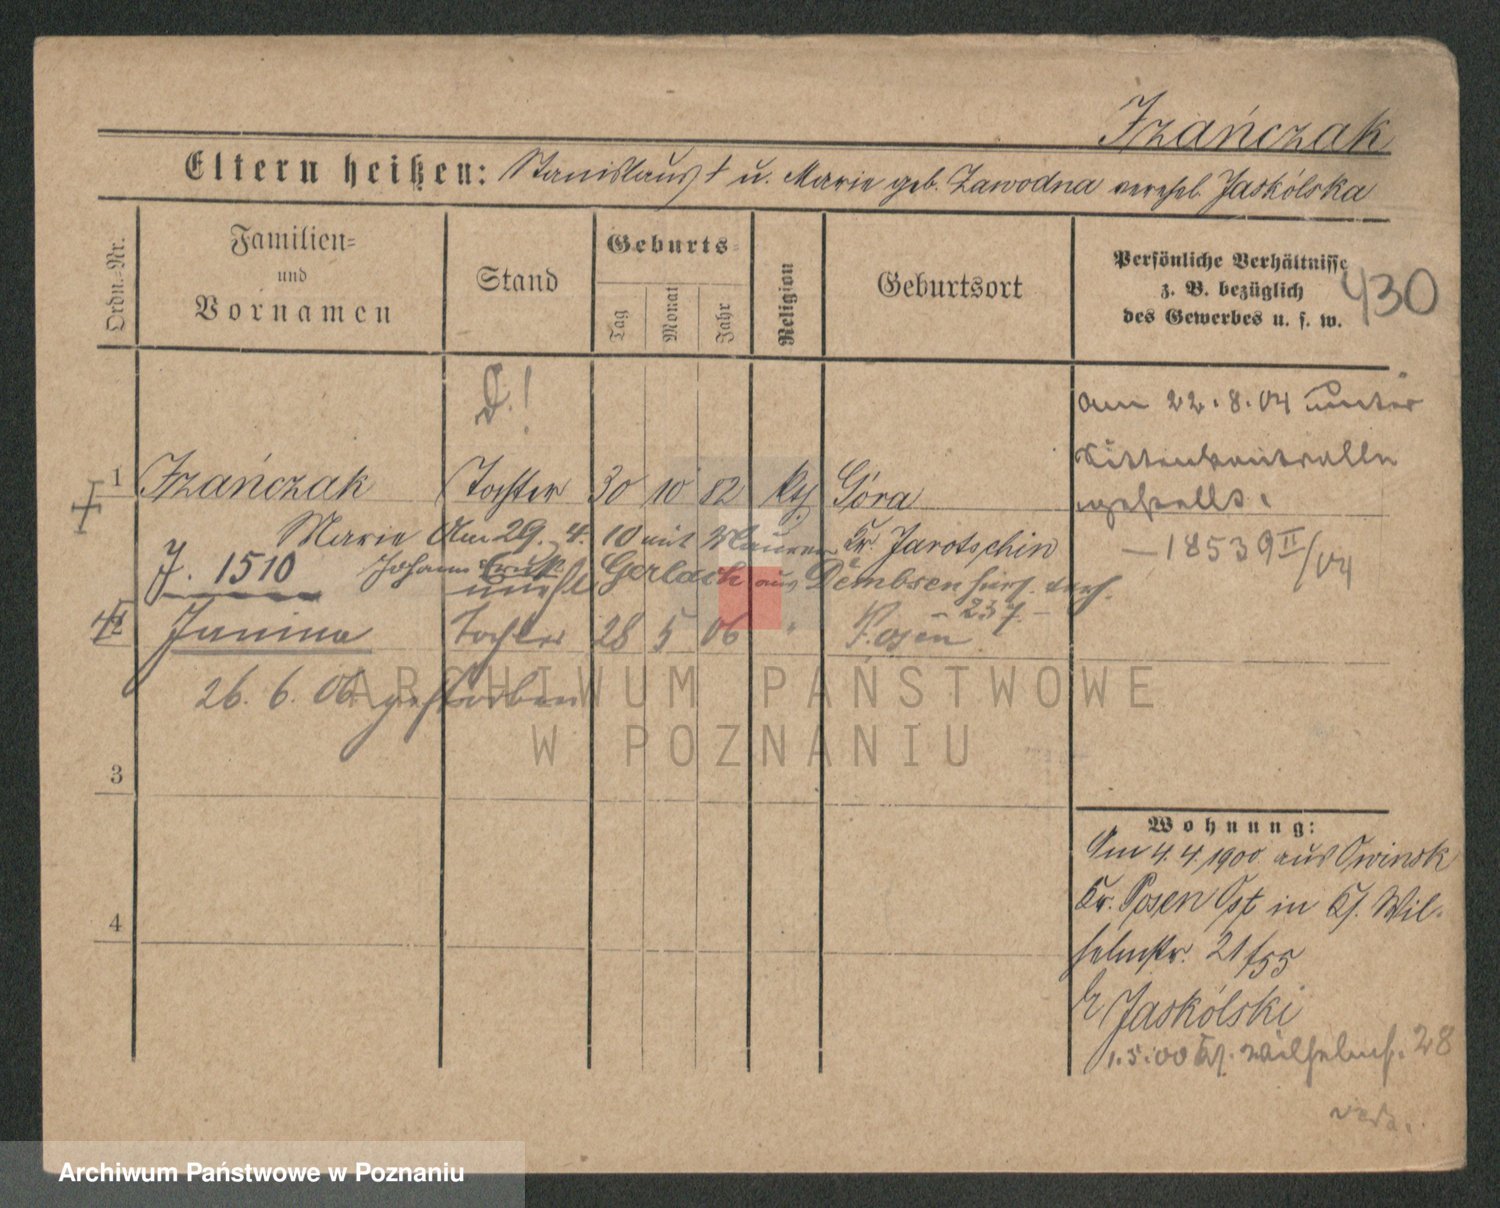 Izańczak
Eltern heißen: Stanislaus † u. Marie geb. Zawodna verehel. Jaskólska
Ordn.-Nr.
Familien-
und
Vornamen
Stand
Geburts-
Tag
Monat
Jahr
Religion
Geburtsort
Persönliche Verhältnisse
z. B. bezüglich
des Gewerbes u. s. w.
430
D.!
am 22.8.04 unter
Sittenkontrolle
gestellt.
— 18539 II/04
1 Izańczak Tochter 30 10 82 kth Góra
Marie Am 29. 4. 10 mit Maurer Kr. Jarotschin
J. 1510 Johann Gerlach aus Dembsen hier
- 237 -
Janina Tochter 28 5 06 " Posen
26. 6. 06 gestorben
3
4
Wohnung:
Am 4.4.1900 aus Owinsk
Kr. Posen Ost in Wil-
helmstr. 21/55
Jaskólski
1.5.00 Wilhelmst. 28
ARCHIWUM PAŃSTWOWE
W POZNANIU
Archiwum Państwowe w Poznaniu